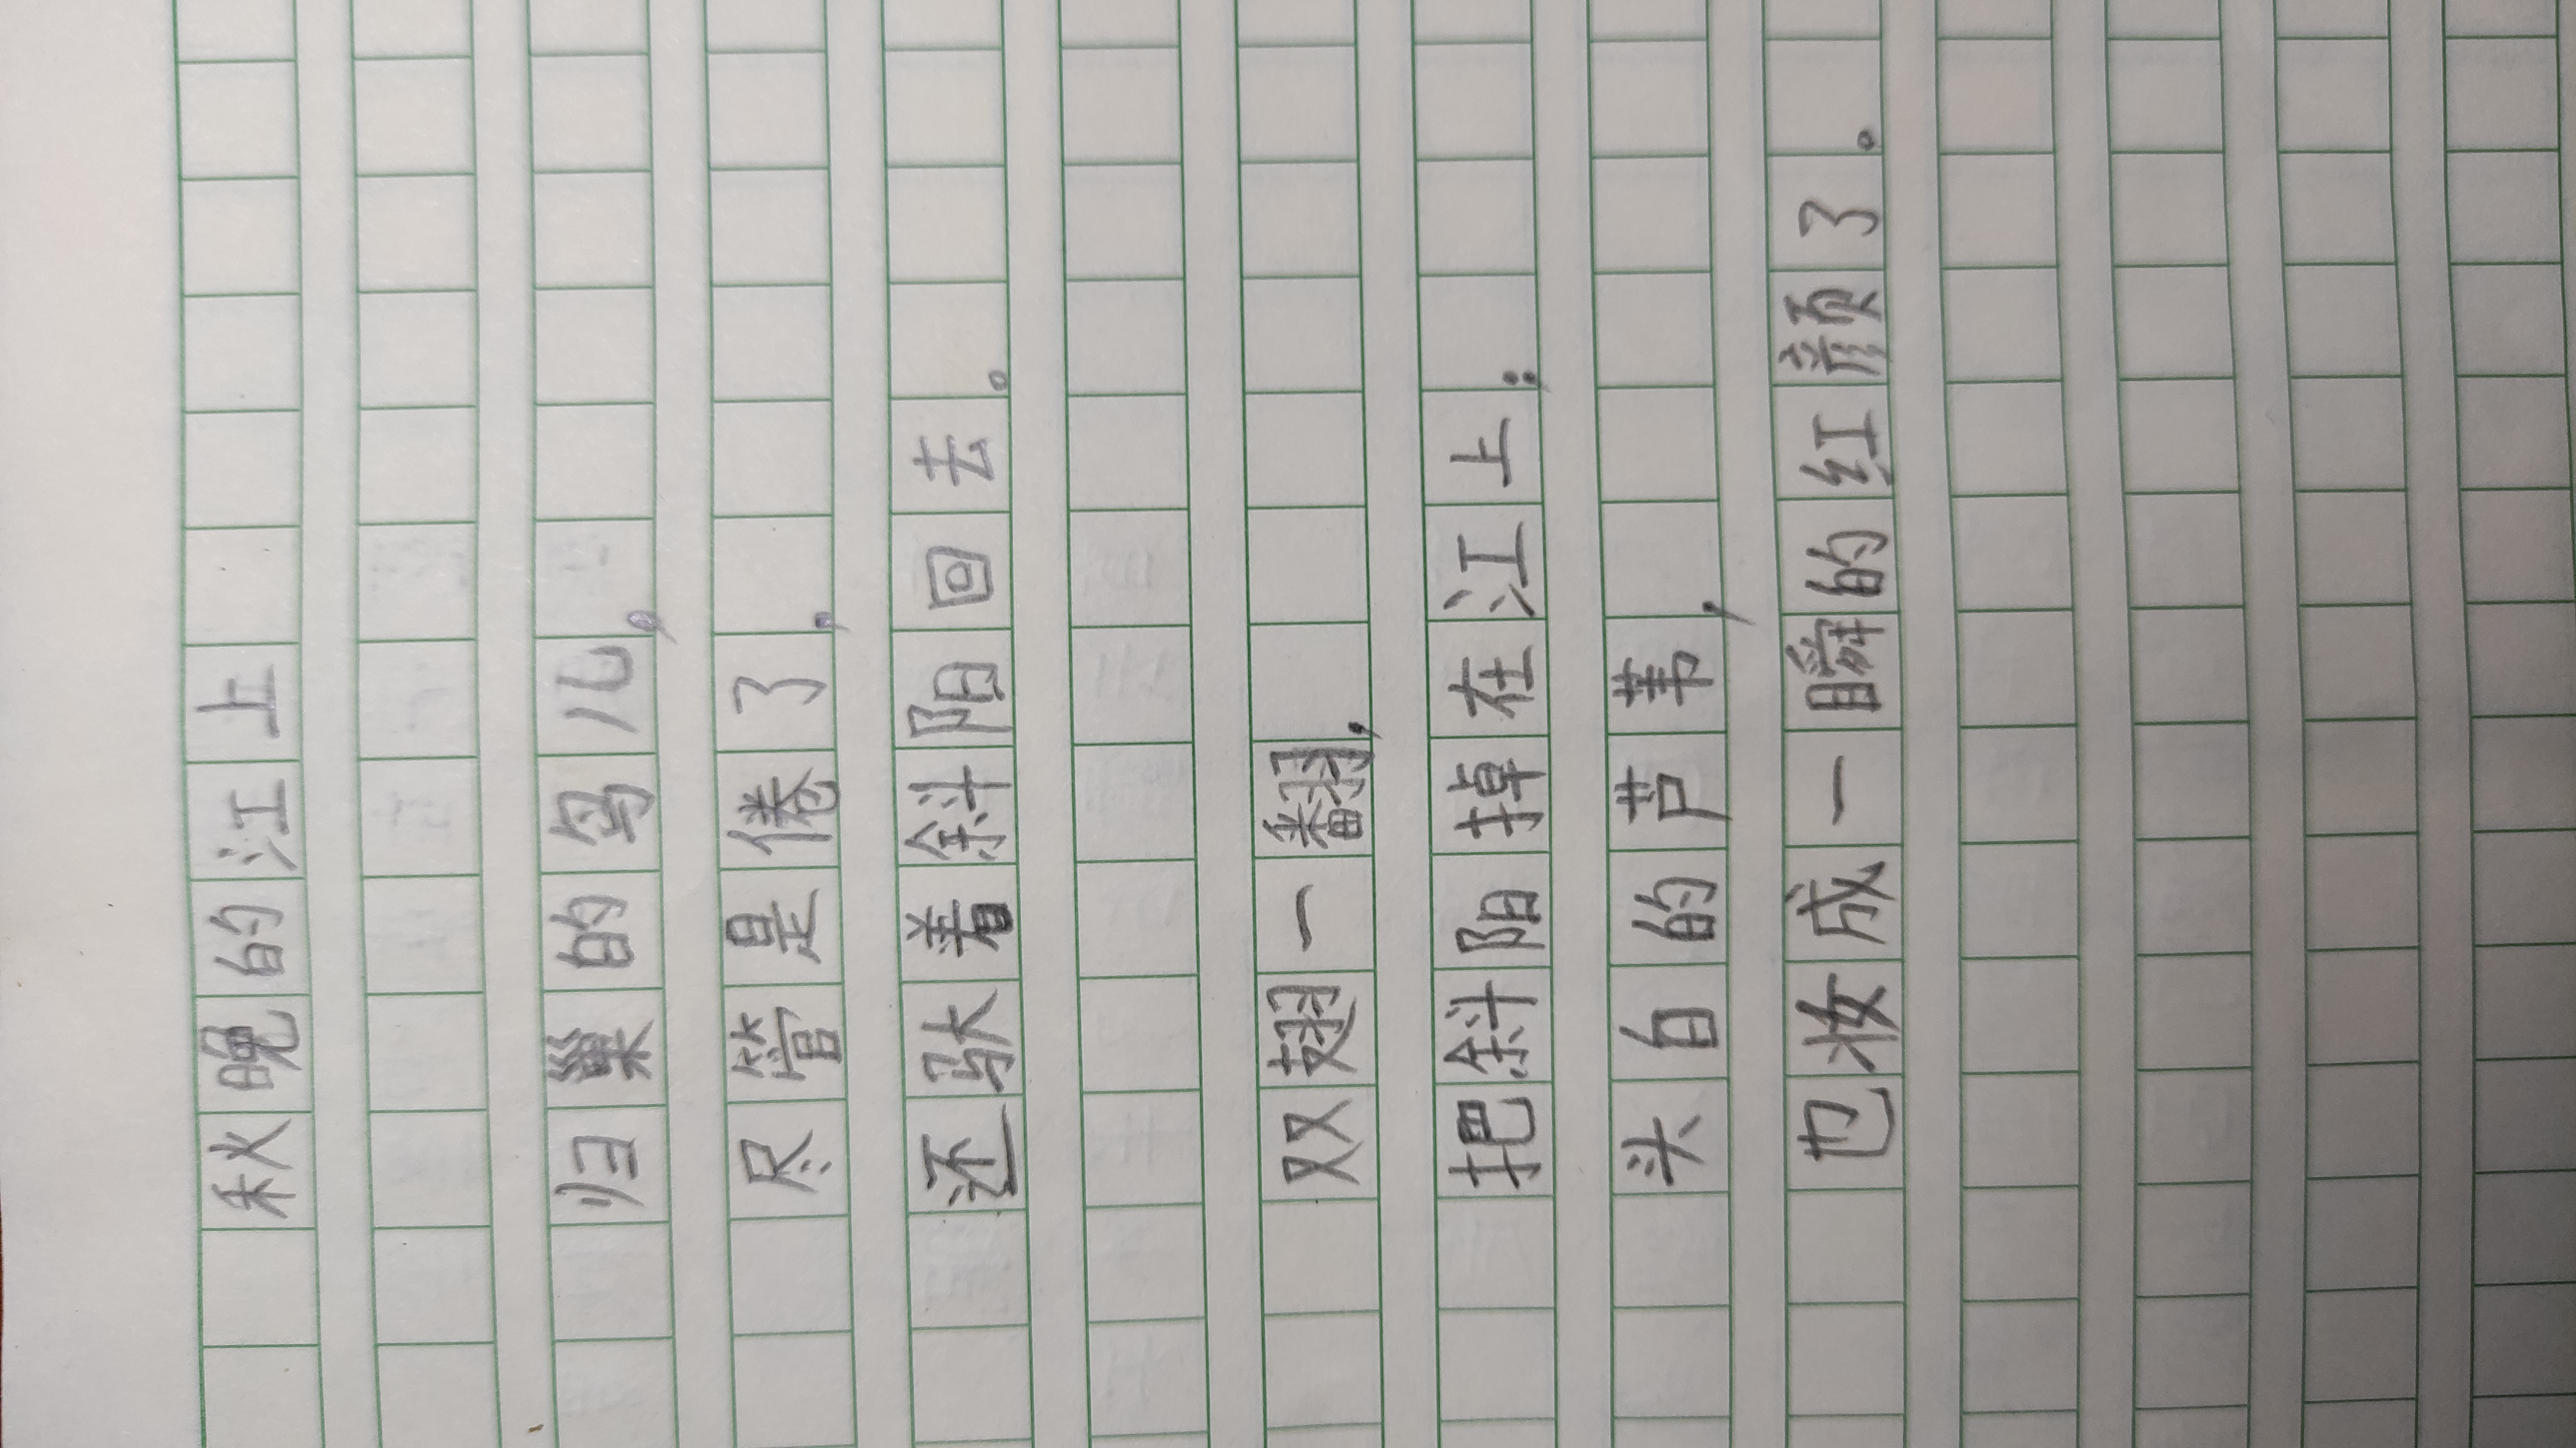 秋晚的江上
归巢的鸟儿，
尽管是倦了，
还驮着斜阳回去。
双翅一翻，
把斜阳掉在江上；
头白的芦苇，
也妆成一瞬的红颜了。